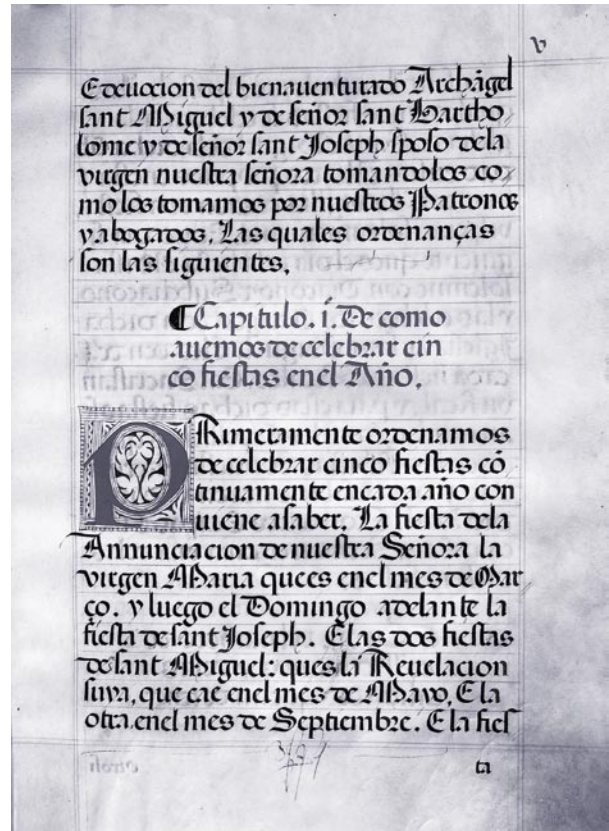 v
E deuocion del bienauenturado Archãgel
sant Miguel y de señor sant Bartho
lome y de señor sant Joseph sposo dela
virgen nuestra señora tomandolos co,
mo los tomamos por nuestros Patronos
y abogados. Las quales ordenanças
son las siguientes.
¶ Capitulo. i. De como
auemos de celebrar cin
co fiestas enel Año.
PRimeramente ordenamos
de celebrar cinco fiestas cõ
tinuamente encada año con
uiene asaber. La fiesta dela
Annunciacion de nuestra Señora la
virgen Maria ques enel mes de Mar
ço. y luego el Domingo adelante la
fiesta de sant Joseph. E las dos fiestas
de sant Miguel: ques la Reuelacion
suya, que cae enel mes de Mayo. E la
otra enel mes de Septiembre. E la fies
ta